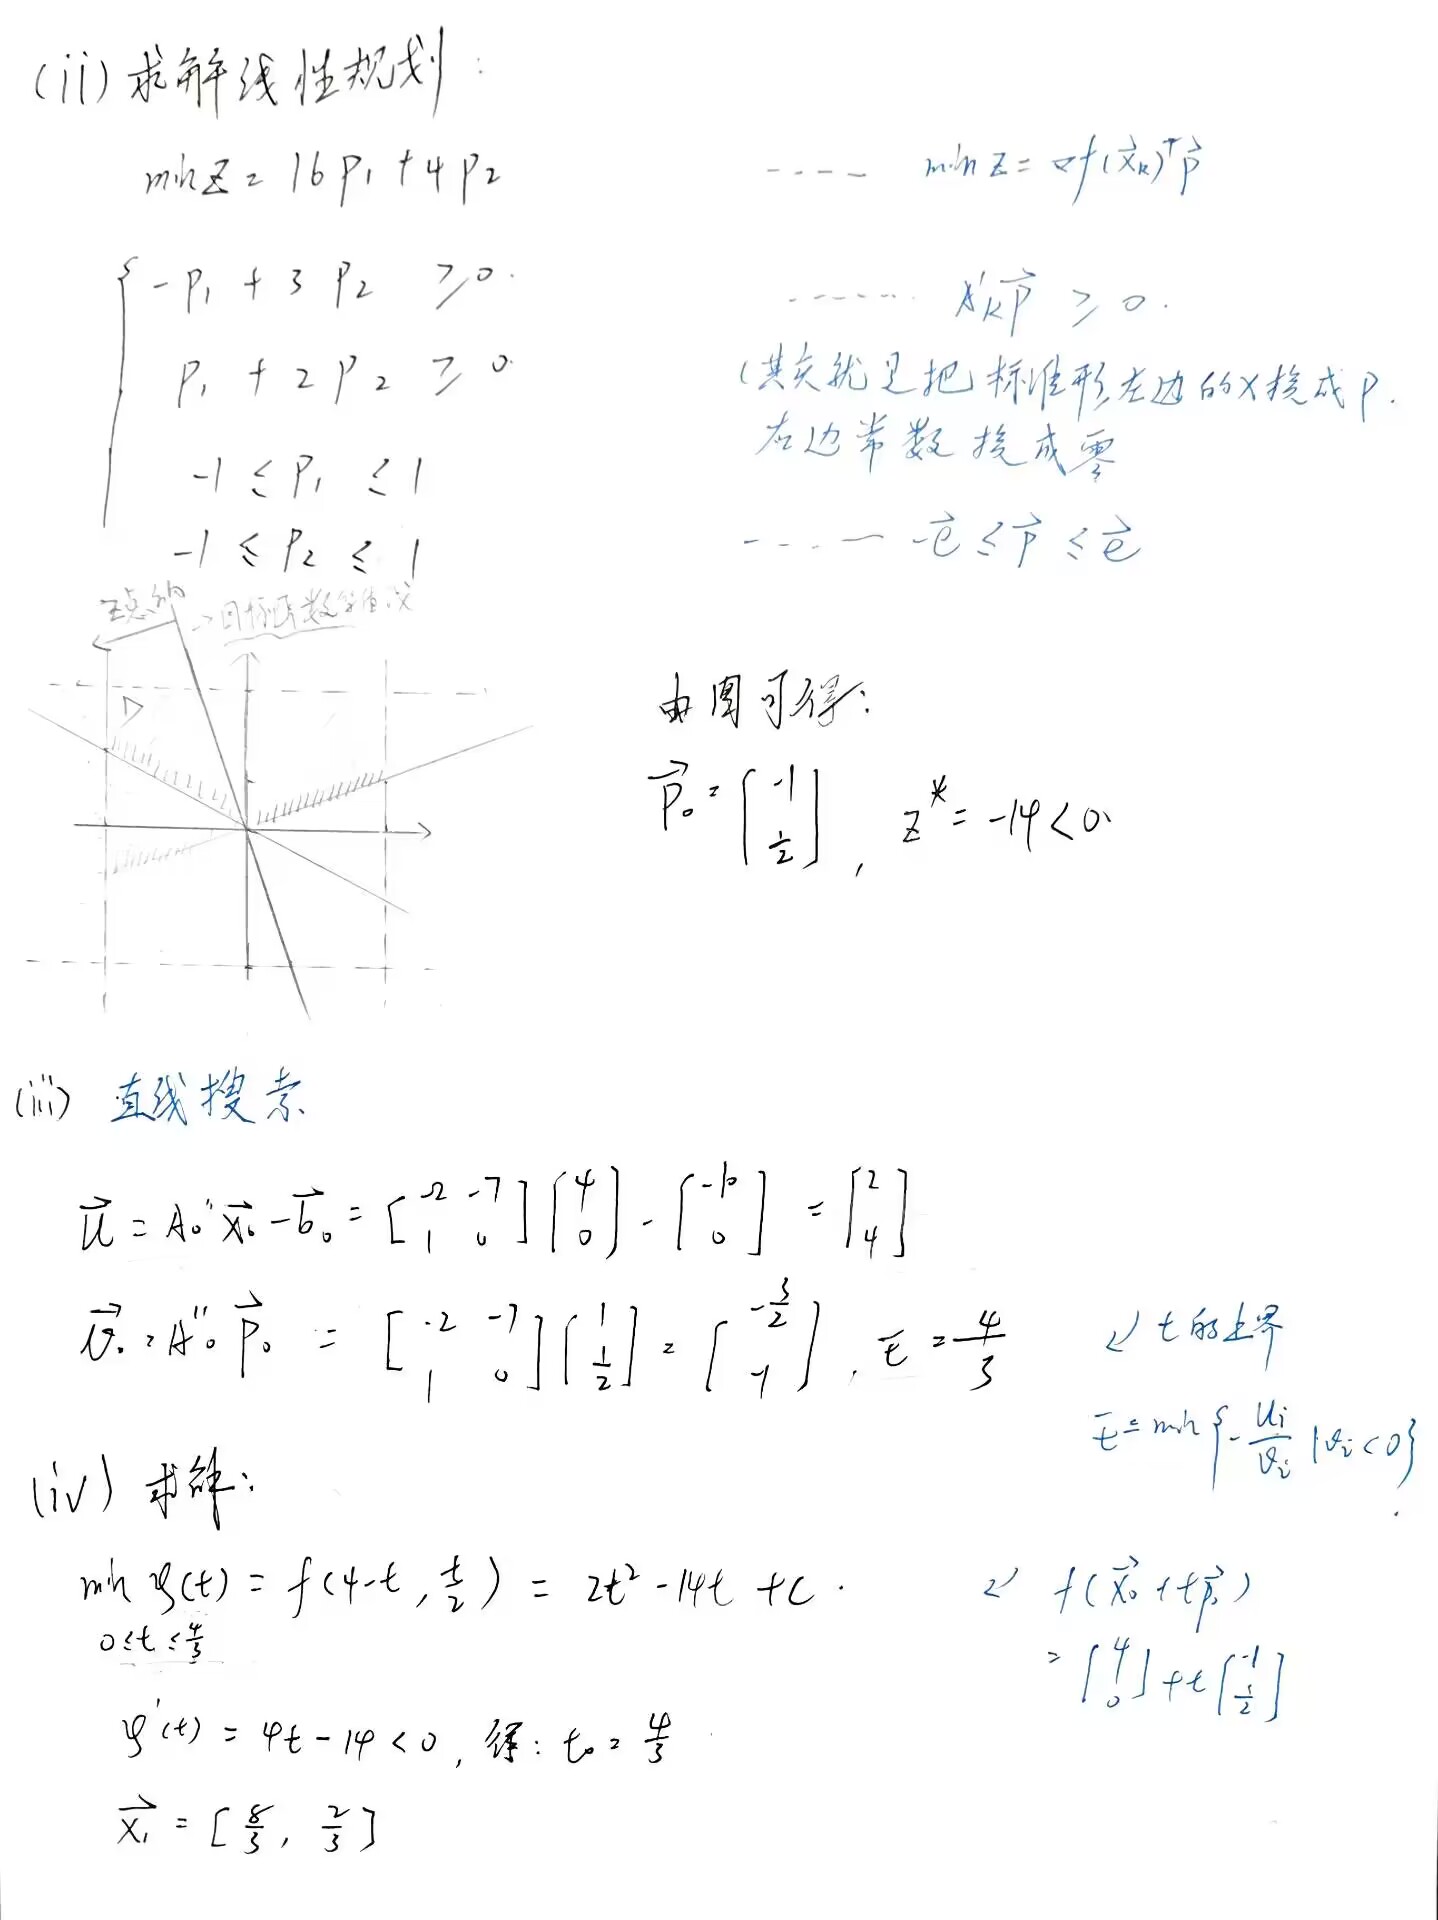 (ii) 求解线性规划:
min Z = 16P₁ + 4P₂
---- min Z = ∇f(x⃗ₖ)ᵀp⃗
{ -P₁ + 3P₂ ≥ 0.
------ A'ₖp⃗ ≥ 0.
P₁ + 2P₂ ≥ 0
(其实就是把标准形左边的X换成P.
右边常数换成零
-1 ≤ P₁ ≤ 1
-1 ≤ P₂ ≤ 1
---- -e⃗ ≤ p⃗ ≤ e⃗
→目标函数等值线
D
由图可得:
P⃗₀ = [-1 1/2], Z* = -14 < 0.
(iii) 直线搜索
u⃗ = A₀''x⃗₀ - b⃗₀ = [-2 -7 1 0][4 0] - [-10 0] = [2 4]
v⃗₀ = A''₀P⃗₀ = [-2 -7 1 0][1 1/2] = [-3/2 -1], t̄ = 4/3
↙ t的上界
t̄ = min{-uᵢ/vᵢ | vᵢ < 0}
(iv) 求解:
min φ(t) = f(4-t, t/2) = 2t² - 14t + C.
↙ f(x⃗₀ + tp⃗₀)
0 ≤ t ≤ 4/3
= [4 0] + t[-1 1/2]
φ'(t) = 4t - 14 < 0, 得: t₀ = 4/3
x⃗₁ = [8/3, 2/3]